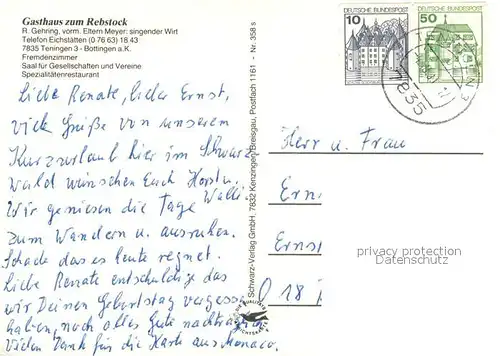 Gasthaus zum Rebstock
R. Gehring, vorm. Eltern Meyer: singender Wirt
Telefon Eichstätten (0 76 63) 18 43
7835 Teningen 3 - Bottingen a.K.
Fremdenzimmer
Saal für Gesellschaften und Vereine
Spezialitätenrestaurant
Liebe Renate, lieber Ernst,
viele Grüße von unserem
Kurzurlaub hier im Schwarz
wald wünschen Euch Horst u.
Walli.
Wir geniesen die Tage
zum Wandern u. ausruhen.
Schade das es heute regnet.
Liebe Renate entschuldige das
wir Deinen Geburtstag vergess
haben, noch alles Gute nachträg
Vielen Dank für die Karte aus Monaco.
Schwarz-Verlag GmbH · 7832 Kenzingen/Breisgau, Postfach 1161 - Nr. 358 s
DEUTSCHE BUNDESPOST
10
DEUTSCHE BUNDESPOST
50
7835
Herr u. Frau
Ern
Ernst
O 18
privacy protection
Datenschutz